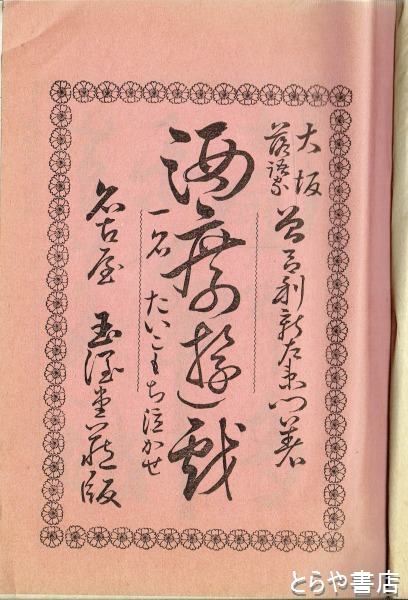 大坂
落語家 曽呂利新左衛門著
酒席遊戯
一名 たいこもち泣かせ
名古屋 玉堂蔵版
とらや書店